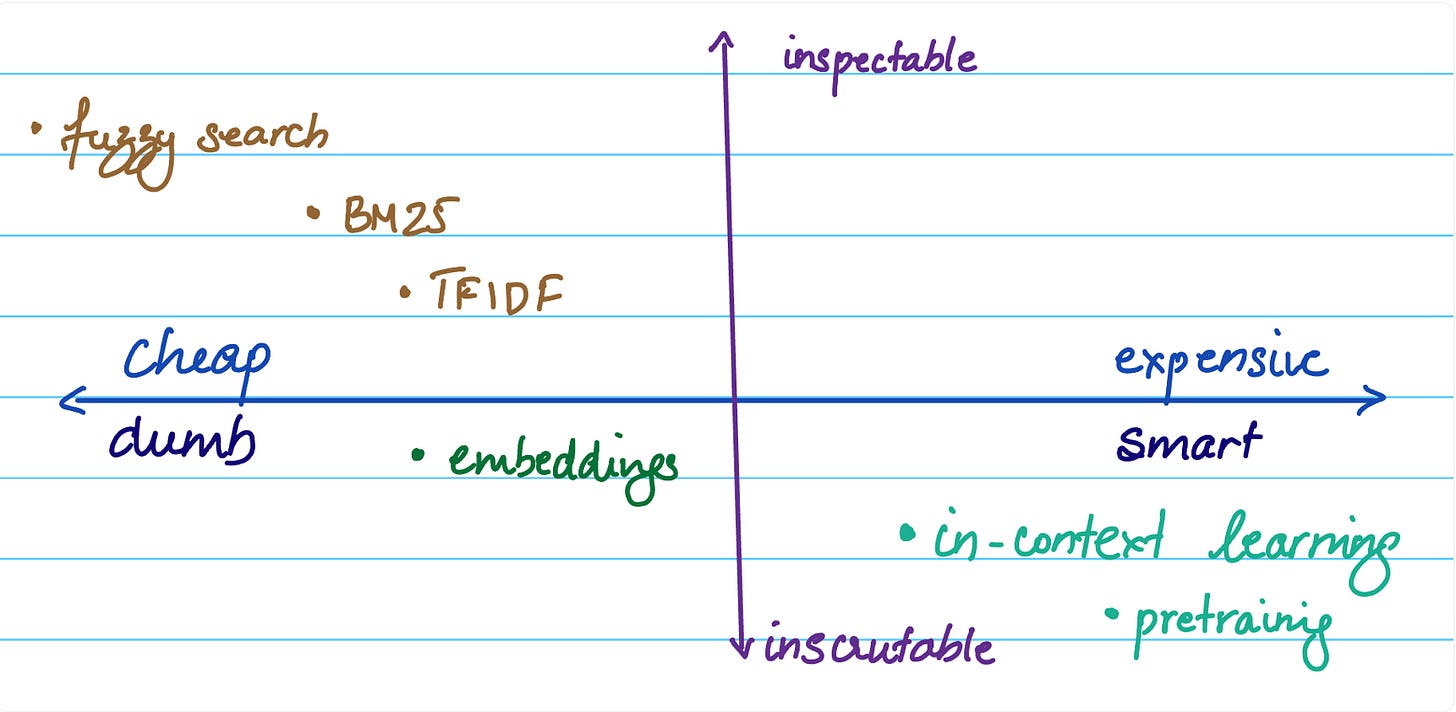 inspectable
• fuzzy search
• BM25
• TFIDF
Cheap
expensive
dumb
smart
• embeddings
• in-context learning
• pretrainig
inscrutable